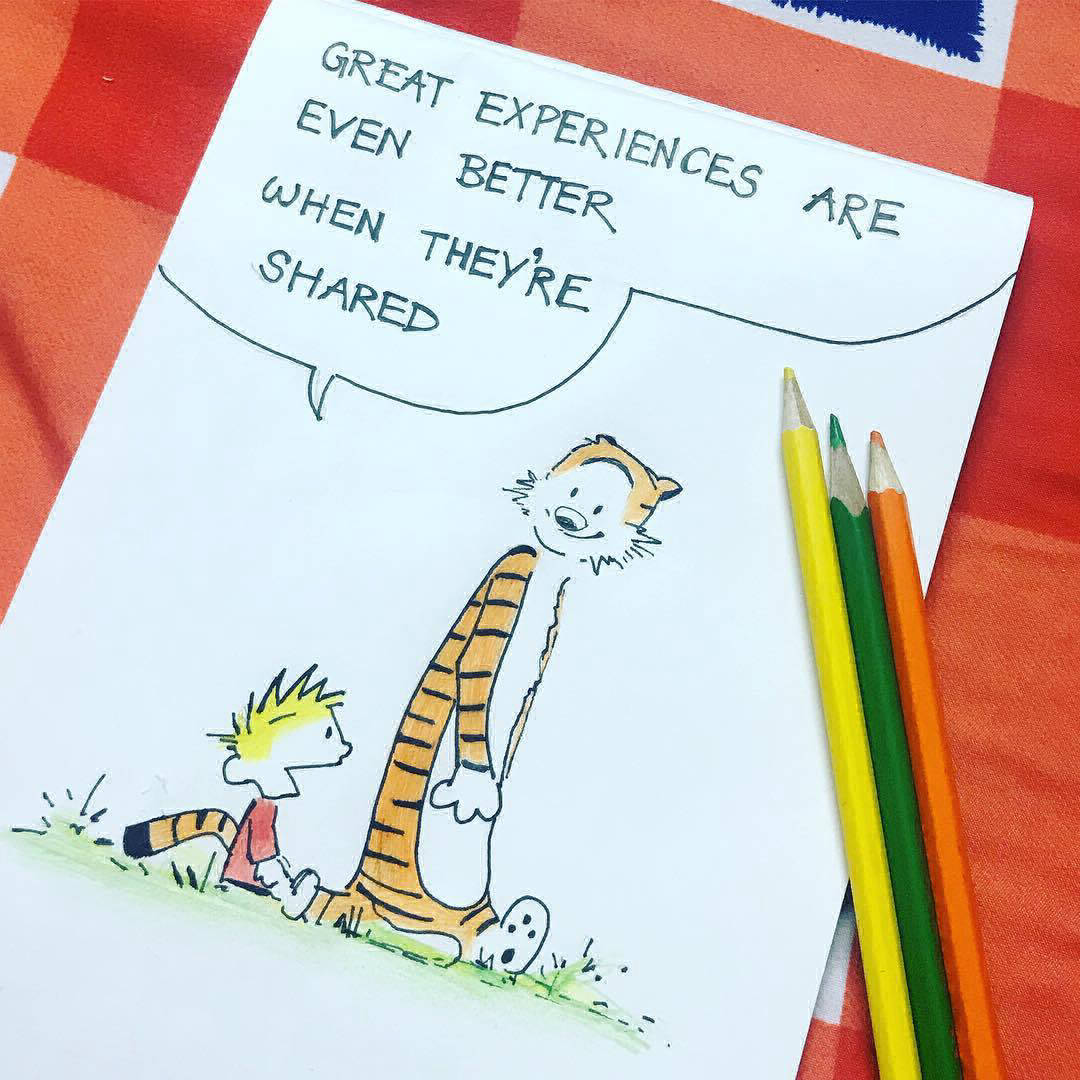 GREAT EXPERIENCES ARE
EVEN BETTER
WHEN THEY'RE
SHARED